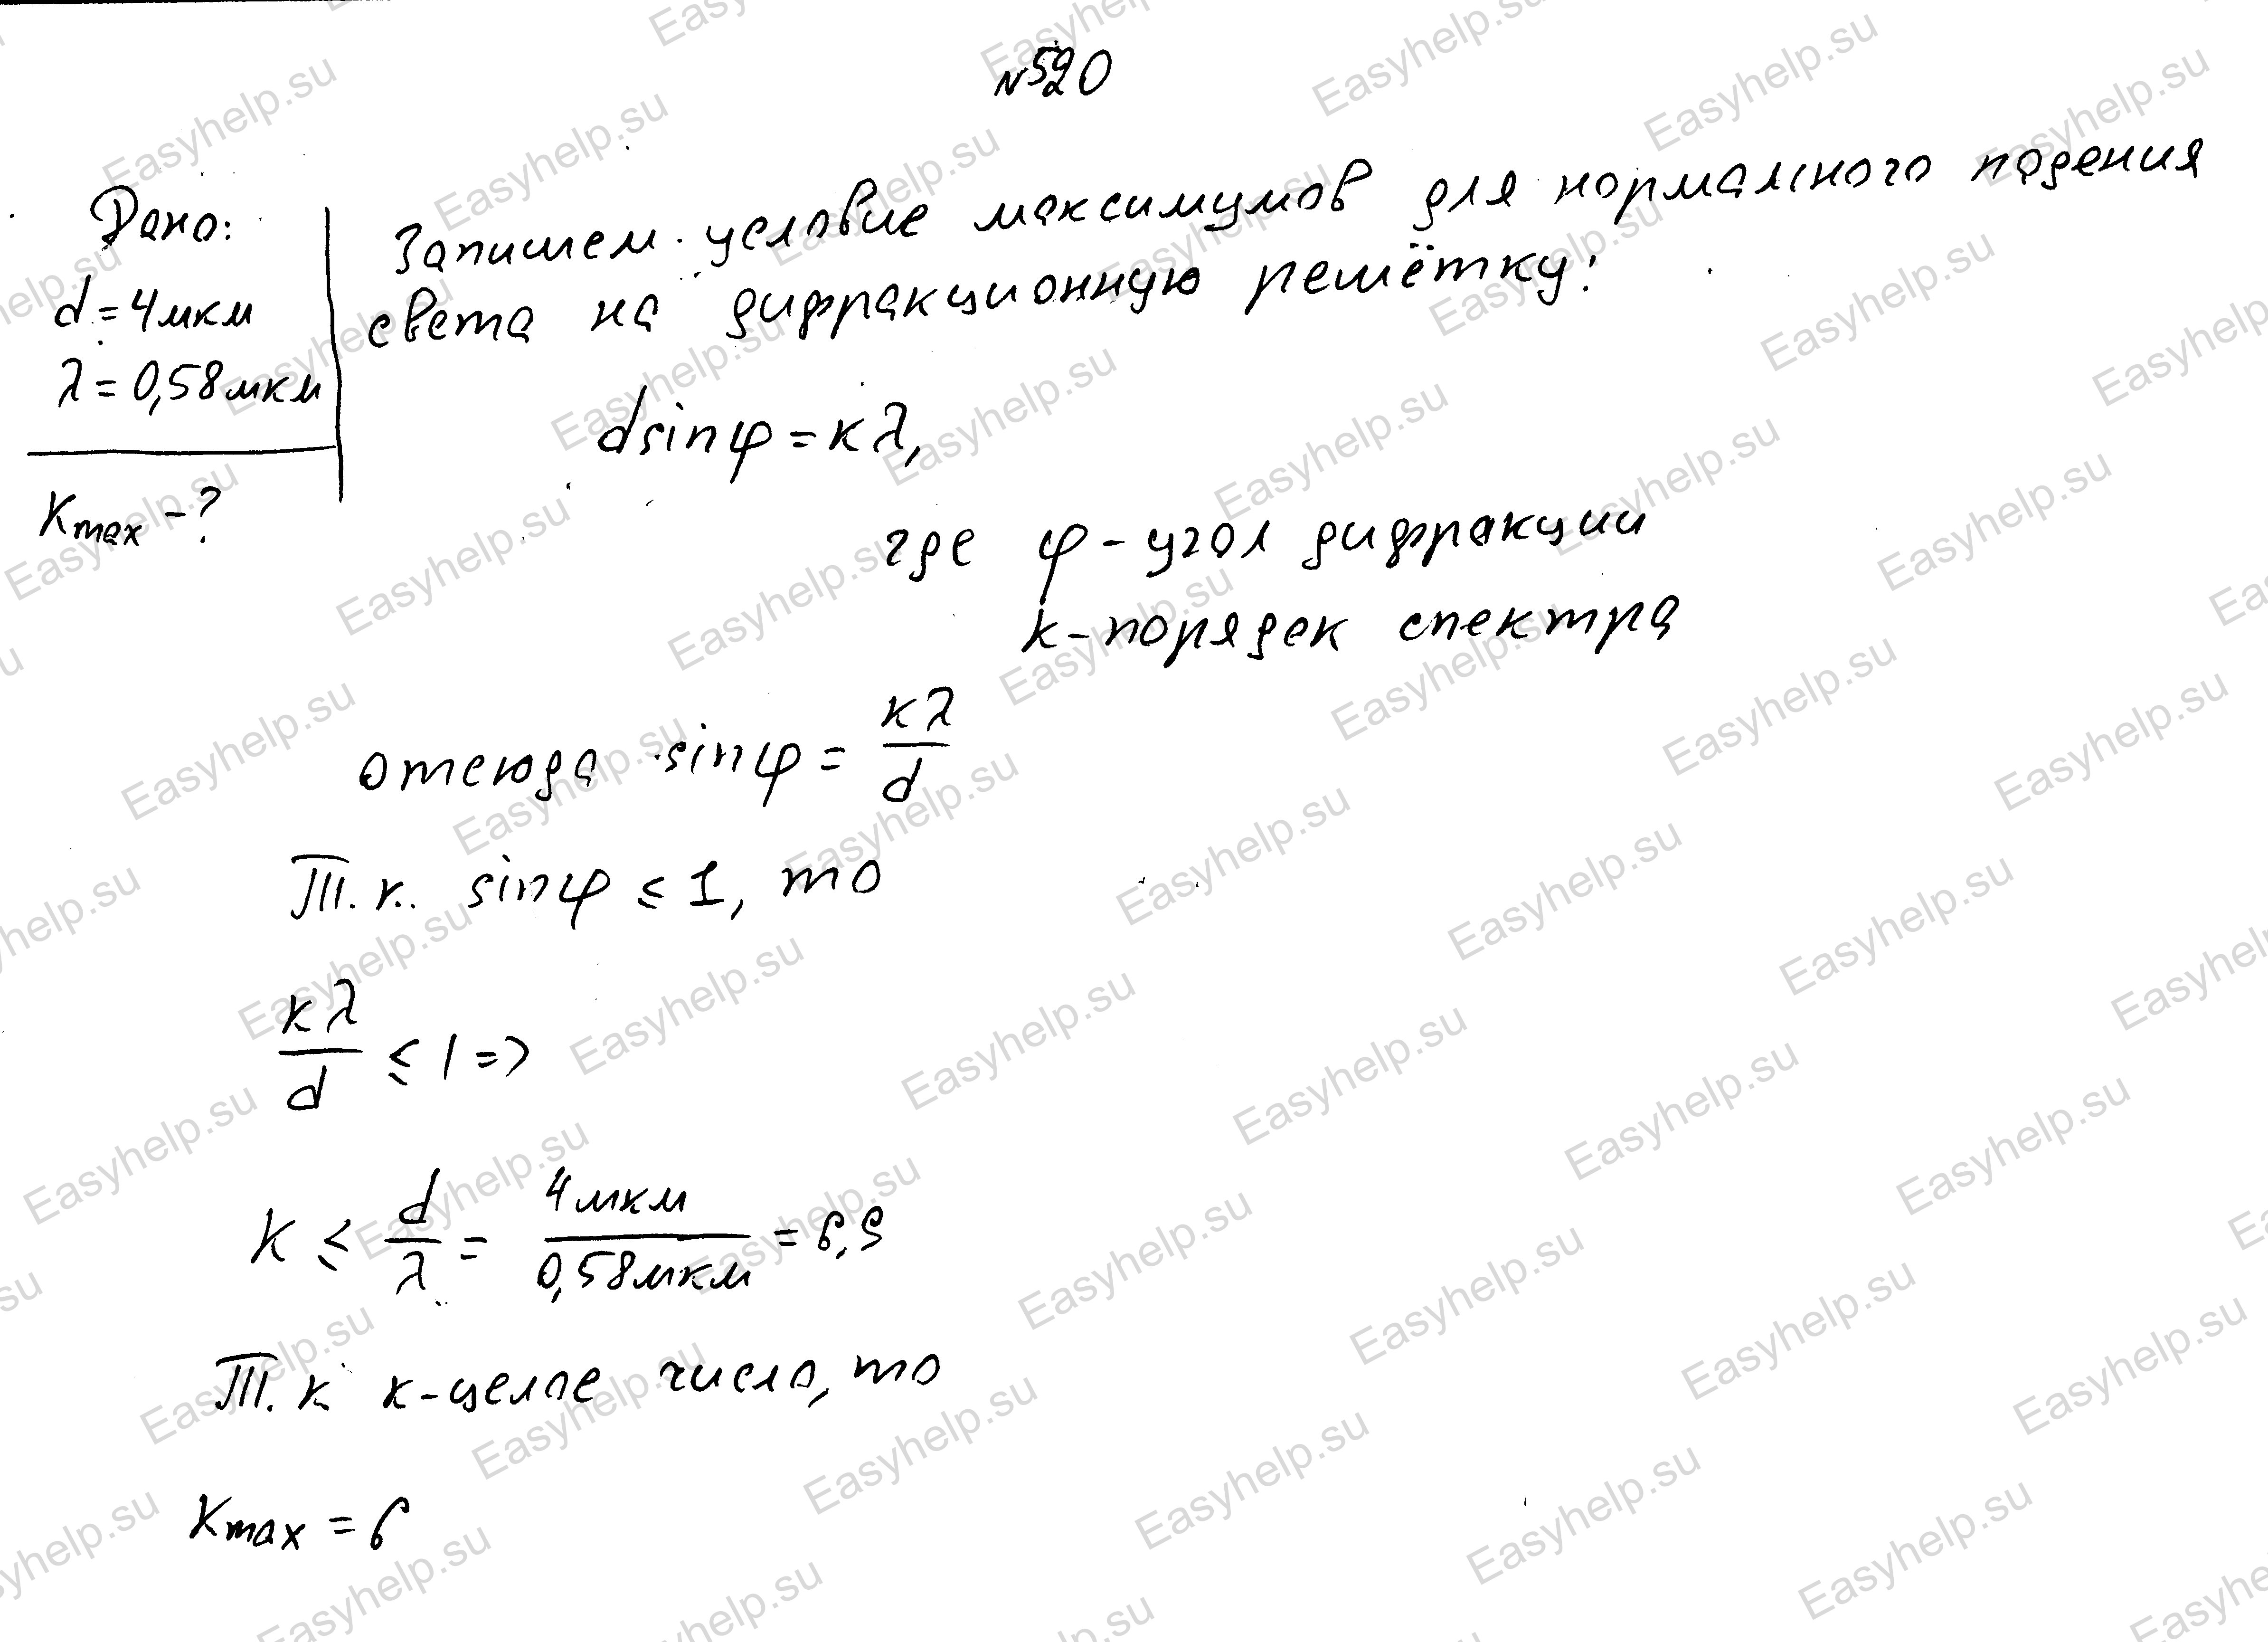 №520
Дано:
d = 4мкм
λ = 0,58мкм
Kmax - ?
Запишем условие максимумов для нормального падения
света на дифракционную решётку:
dsinφ = kλ,
где φ - угол дифракции
k - порядок спектра
отсюда sinφ = kλ/d
Т.к. sinφ ≤ 1, то
kλ/d ≤ 1 =>
k ≤ d/λ = 4мкм/0,58мкм = 6,9
Т.к k - целое число, то
Kmax = 6
Easyhelp.su